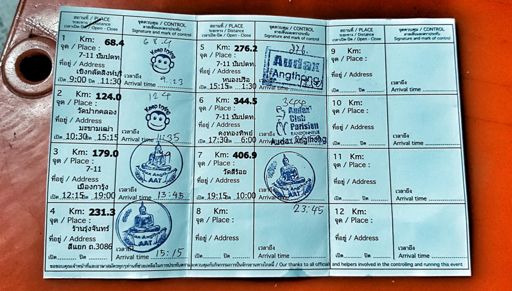 สถานที่ / PLACE
ระยะทาง / Distance
เวลาเปิด-ปิด / Open - Close
จุดควบคุม / CONTROL
ลายเซ็นและตราประทับ
Signature and mark of control
สถานที่ / PLACE
ระยะทาง / Distance
เวลาเปิด-ปิด / Open - Close
จุดควบคุม / CONTROL
ลายเซ็นและตราประทับ
Signature and mark of control
สถานที่ / PLACE
ระยะทาง / Distance
เวลาเปิด-ปิด / Open - Close
จุดควบคุม / CONTROL
ลายเซ็นและตราประทับ
Signature and mark of control
1 Km: 68.4
จุด / Place :
7-11 ปั๊มปตท.
ที่อยู่ / Address
เชิงกลัดสิงห์บุรี
เปิด 9:00 ปิด 11:30
เวลาถึง
Arrival time 9:23
2 Km: 124.0
จุด / Place :
วัดปากคลอง
ที่อยู่ / Address
มะขามเฒ่า
เปิด 10:30 ปิด 15:15
เวลาถึง
Arrival time 11:35
3 Km: 179.0
จุด / Place :
7-11
ที่อยู่ / Address
เมืองการุ้ง
เปิด 12:15 ปิด 19:00
AAT
เวลาถึง
Arrival time 13:45
4 Km: 231.3
จุด / Place :
ร้านรุ่งจันทร์
ที่อยู่ / Address
สี่แยก ถ.3086
เปิด ปิด
AAT
เวลาถึง
Arrival time 15:15
5 Km: 276.2
จุด / Place :
7-11 ปั๊มปตท.
ที่อยู่ / Address
หนองปรือ
เปิด 15:15 ปิด 11:30
276.
Audax
Angthong
เวลาถึง
Arrival time
6 Km: 344.5
จุด / Place :
7-11 ปั๊มปตท.
ที่อยู่ / Address
ดงทองทิพย์
เปิด 17:30 ปิด 6:00
Audax
Club
Parisien
Audax Angthong
เวลาถึง
Arrival time
7 Km: 406.9
จุด / Place :
วัดสี่ร้อย
ที่อยู่ / Address
เปิด 19:15 ปิด 10:00
AAT
เวลาถึง
Arrival time 23:45
8 Km:
จุด / Place :
ที่อยู่ / Address
เปิด ปิด
เวลาถึง
Arrival time
9 Km:
จุด / Place :
ที่อยู่ / Address
เปิด ปิด
เวลาถึง
Arrival time
10 Km:
จุด / Place :
ที่อยู่ / Address
เปิด ปิด
เวลาถึง
Arrival time
11 Km:
จุด / Place :
ที่อยู่ / Address
เปิด ปิด
เวลาถึง
Arrival time
12 Km:
จุด / Place :
ที่อยู่ / Address
เปิด ปิด
เวลาถึง
Arrival time
/ Our thanks to all officials and helpers involved in the controlling and running this event